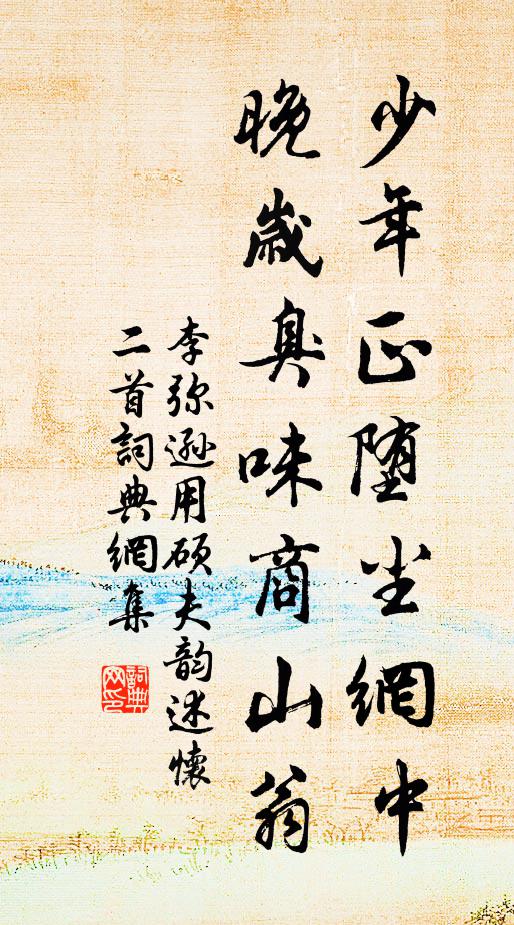 少年正堕尘網中
晚歲臭味商山翁
李弥遜用硕夫韵述懷
二首詞典網集
詞典
网印